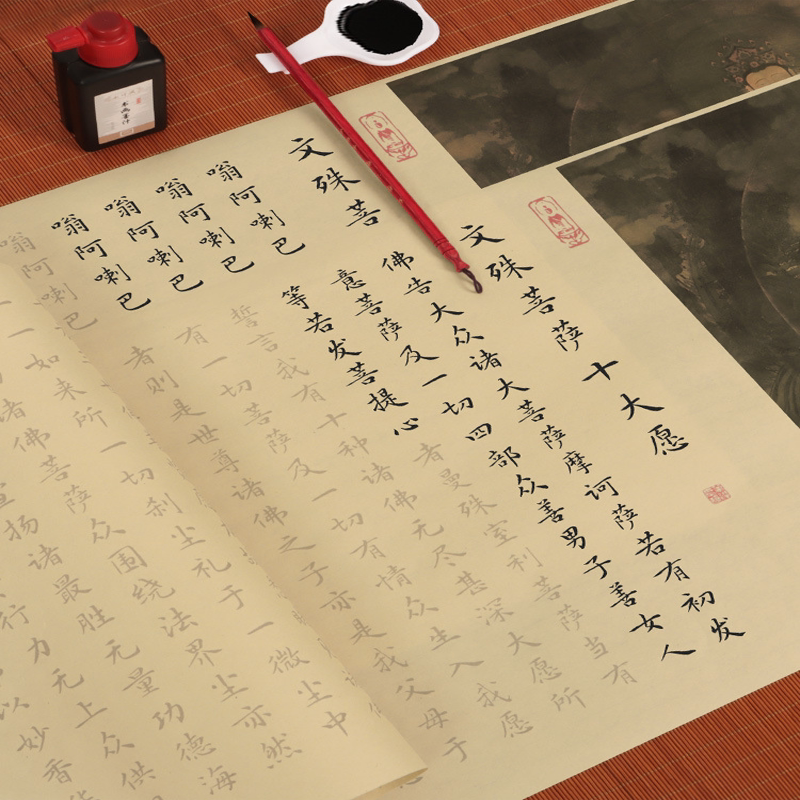 文殊菩萨十大愿
佛告大众诸大菩萨摩诃萨若有初发
意菩萨及一切四部众善男子善女人
等若发菩提心者曼殊室利菩萨当有
誓言我有十种诸佛无尽甚深大愿所
有一切菩萨及一切有情众生入我愿
者则是世尊诸佛之子亦是我父母于
文殊菩
嗡阿喇巴
嗡阿喇巴
嗡阿喇巴
嗡阿喇巴
嗡阿喇巴
一如来所一切刹尘礼于一微尘中
诸佛菩萨众围绕法界尘亦然
宣扬诸最胜无量功德海
行力无上众供
以妙香